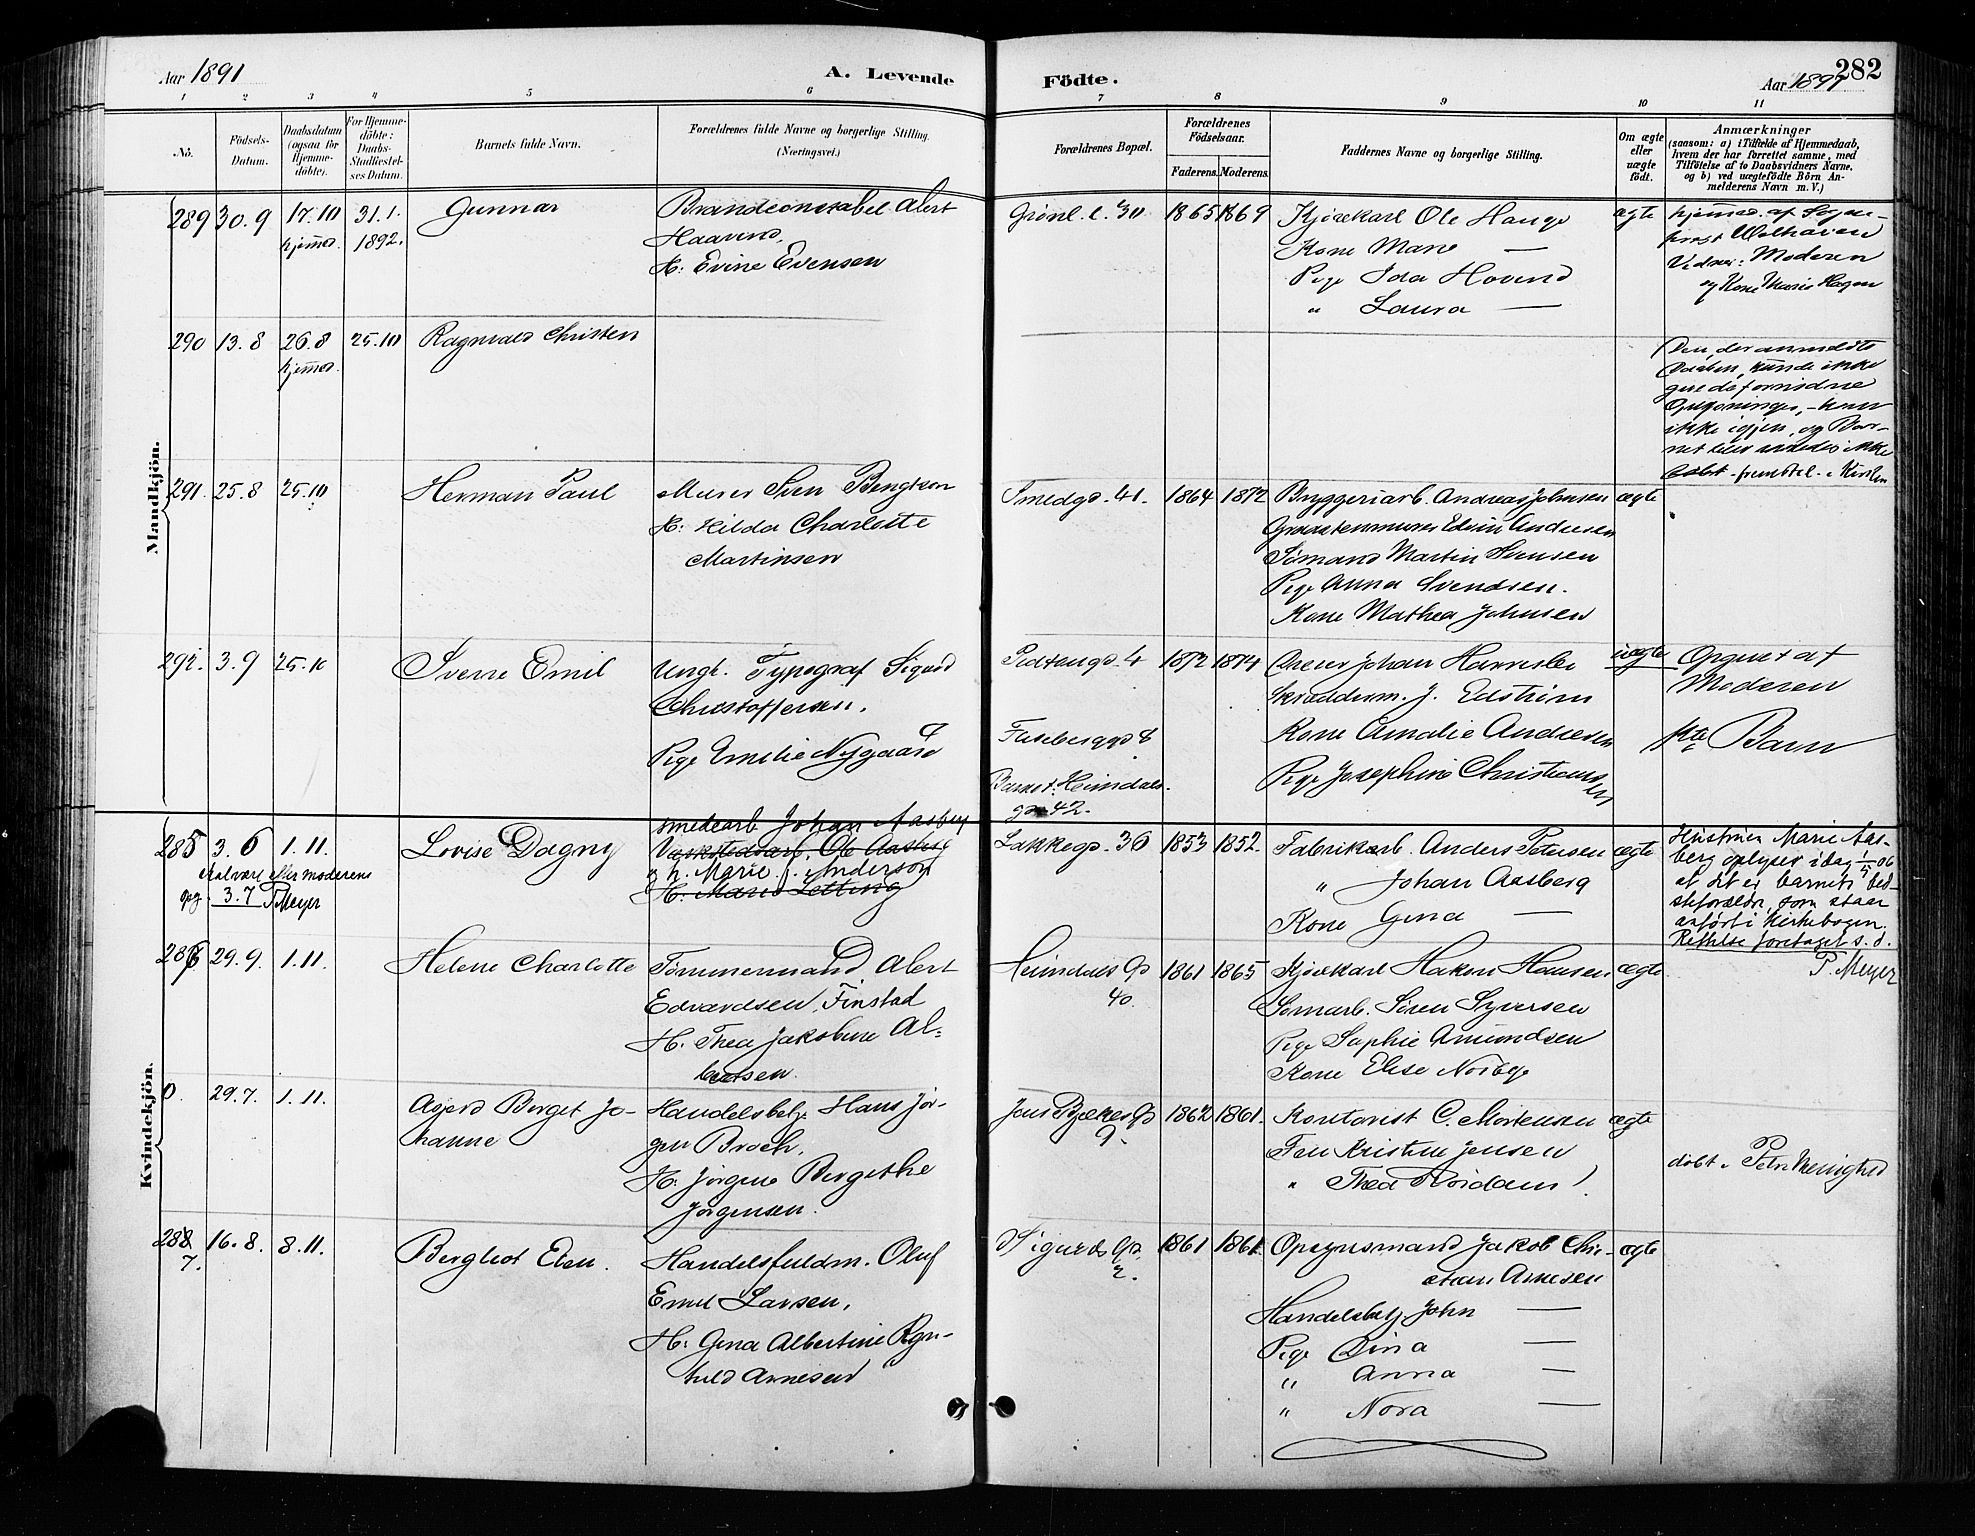 Aar 1891
A. Levende
Födte.
282
Aar 1891
1 2 3 4 5 6 7 8 9 10 11
No.
Födsels-
Datum.
Daabsdatum
(ogsaa for
Hjemme-
döbte).
For Hjemme-
döbte:
Daabs-
Stadfæstel-
ses Datum.
Barnets fulde Navn.
Forældrenes fulde Navne og borgerlige Stilling.
(Næringsvei.)
Forældrenes Bopæl.
Forældrenes
Födselsaar.
Faderens. Moderens.
Faddernes Navne og borgerlige Stilling.
Om ægte
eller
uægte
født.
Anmærkninger
(saasom: a) i Tilfælde af Hjemmedaab,
hvem der har forrettet samme, med
Tilföielse af to Daabsvidners Navne,
og b) ved uægtefødte Börn An-
melderens Navn m. V.)
Mandkjön.
289 30.9 17.10 31.1.
hjemmed. 1892.
Gunnar
Brandconstabel Albert
Haavind,
H: Evine Evensen
Grønl. l. 30 1865 1869
Kjørekarl Ole Hauge
Kone Marie —
Pige Ida Hovind
" Laura —
ægte
hjemmed. af Sogne-
prest Welhaven
Vidner: Moderen
og Kone Marie Hagen
290 13.8 26.8 25.10
hjemmed.
Ragnvald Christen
Den, der anmeldte
Daaben, kunde ikke
give de fornødne
Oplysninger, – kom
ikke igjen, og Bar-
net blev saaledes ikke
fremstil. i Kirken
291. 25.8 25.10
Herman Paul
Murer Sven Bengtson
H: Hilda Charlotte
Martinsen
Smedgd. 41. 1864 1872
Bryggeriarb. Andreas Johnsen
Graastensmurer Edvin Andersen
Sømand Martin Hansen
Pige Anna Svendsen.
Kone Mathea Johnsen
ægte
292. 3.9 25.10
Sverre Emil
Ungk. Typograf Sigurd
Christoffersen.
Pige Emilie Nygaard
4 1872 1874
8
Barnet: Heimdals-
gd 42.
Johan
Skræderm. J. Edstrøm
Kone Amalie Andresen
Pige Josephine Christiansen
uægte
Opgivet af
Moderen
Barn
Kvindekjön.
285 3.6 1.11.
skal være efter moderens
opg. 3.7 P Meyer
Lovise Dagny
Smedearb Johan Aasberg
Værkstedsarb. Ole Aasberg
og h. Marie f. Anderson
H: Marie Letting
Lakkegd. 36 1853 1852.
Fabrikarb. Anders Petersen
" Johan Aasberg
Kone Gina —
ægte
Hustruen Marie Aas-
berg oplyser idag
at det er barnets bed-
steforældre, som staar
anført i kirkebogen.
Rettelse foretaget s. d.
P. Meyer
286 29.9. 1.11.
Helene Charlotte
Tømmermand Albert
Edvardsen, Finstad
H. Thea Jakobine Al-
bertsen.
Heimdals Gd
40.
1861 1865
Kjørekarl Hakon Hansen
Somarb. Søren Syversen
Pige Sophie Amundsen
Kone Elise Norbye
ægte
0. 29.7. 1.11.
Asgerd Berget Jo-
hanne
Handelsbetj. Hans Jør-
gen Broch,
H. Jørgine Bergithe
Jørgensen.
Jens Bjelkes Gd
9.
1862 1861.
Kontorist C. Mortensen
Frk Kristine Jensen
" Thea Nordam
ægte
døbt i Petri Menighed
288 16.8. 8.11.
7.
Bergliot Elen.
Handelsfuldm. Oluf
Emil Larsen,
H. Gina Albertine Ragn-
hild Arnesen
Sigurds Gd.
2.
1861 1861
Opsynsmand Jakob Chri-
stian Arnesen
Handelsbetj. John —
Pige Dina —
" Anna —
" Nora —
ægte